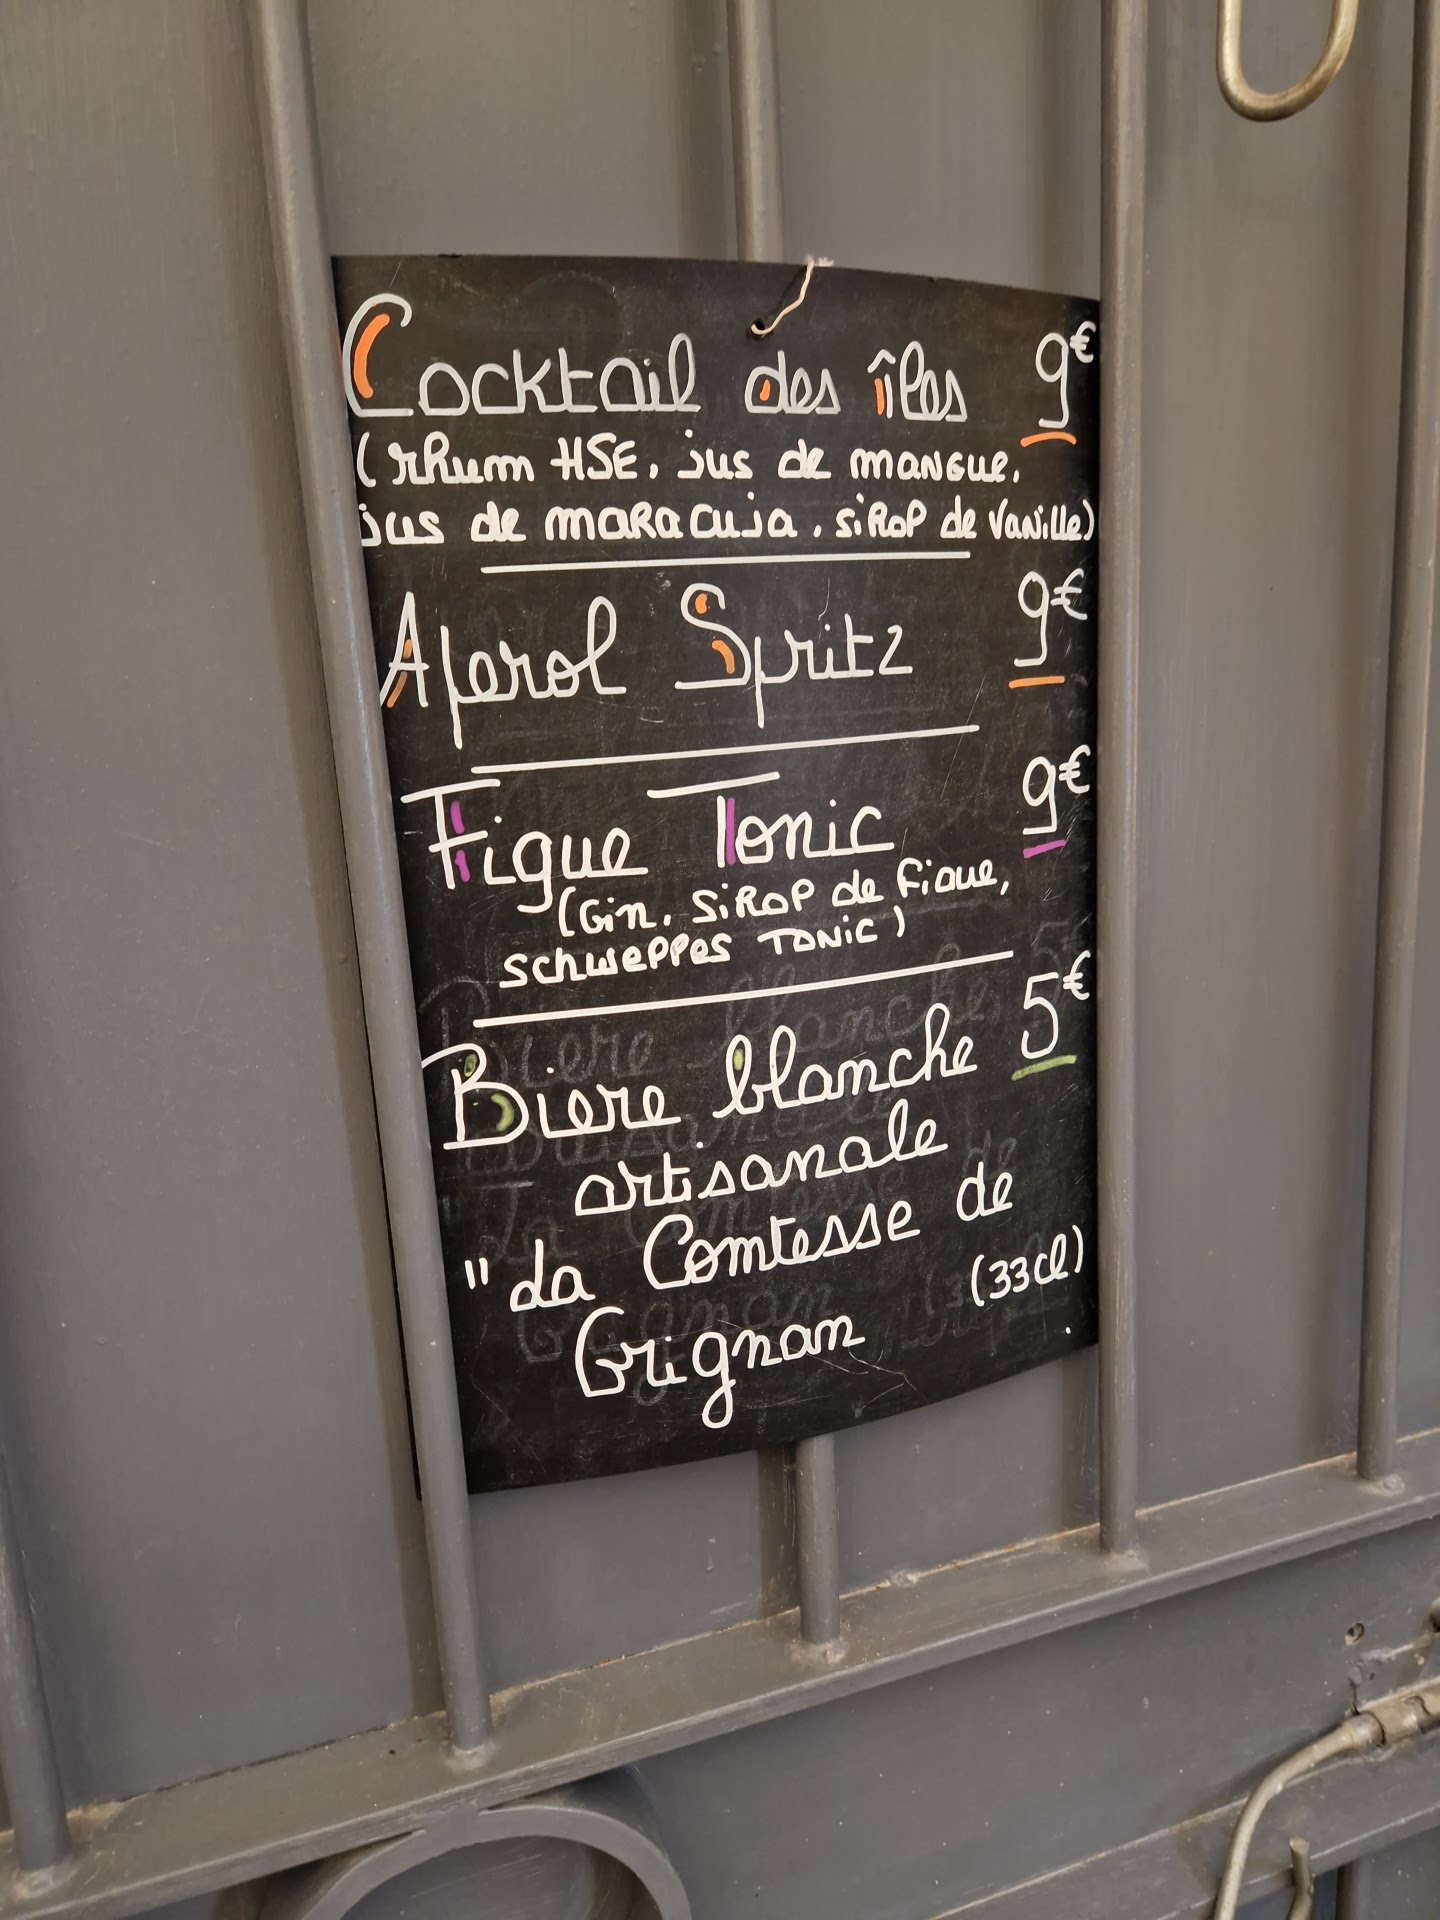 Cocktail des îles 9€
(rhum HSE, jus de mangue,
jus de maracuja, sirop de vanille)
Aperol Spritz 9€
Figue Tonic 9€
(Gin, sirop de figue,
schweppes tonic)
Biere blanche 5€
artisanale
"La Comtesse de
Grignan (33cl)